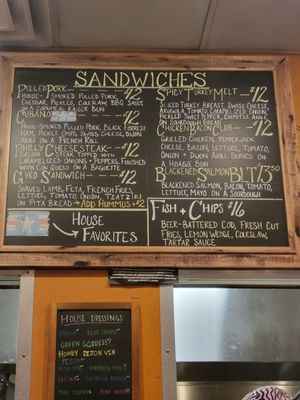 SANDWICHES
PULLED PORK $12
HOUSE-SMOKED PULLED PORK,
CHEDDAR, PICKLES, COLESLAW, BBQ SAUCE
ON A CORNMEAL KAISER BUN
CUBANO $12
HOUSE-SMOKED PULLED PORK, BLACK FOREST
HAM, PICKLE CHIPS, SWISS CHEESE, DIJON
AIOLI ON A FRENCH ROLL
PHILLY CHEESESTEAK $12
CHICKEN OR STEAK TOPPED WITH
CARAMELIZED ONIONS + PEPPERS, FINISHED
WITH ON A BAGUETTE
GYRO SANDWICH $12
SHAVED LAMB, FETA, FRENCH FRIES,
LETTUCE, TOMATO, ONION, TZATZIKI
ON PITA BREAD → ADD HUMMUS +$2
HOUSE
FAVORITES
SPICY TURKEY MELT $12
SLICED TURKEY BREAST, SWISS CHEESE,
ARUGULA, TOMATO, CARAMELIZED ONION,
PICKLED SWEET PEPPER, CHIPOTLE AIOLI
ON SOURDOUGH BREAD
CHICKEN BACON CLUB $12
GRILLED CHICKEN, PEPPER JACK
CHEESE, BACON, LETTUCE, TOMATO,
ONION + DIJON AIOLI. SERVED ON
A HOAGIE
BLACKENED SALMON BLT $13.50
BLACKENED SALMON, BACON, TOMATO,
LETTUCE, AND MAYO ON A SOURDOUGH
FISH + CHIPS $16
BEER-BATTERED COD, FRESH CUT
FRIES, LEMON WEDGE, COLESLAW,
TARTAR SAUCE
HOUSE DRESSINGS
RANCH BLUE CHEESE
GREEN GODDESS
HONEY DIJON VIN
PESTO
CAESAR CHIPOTLE RANCH